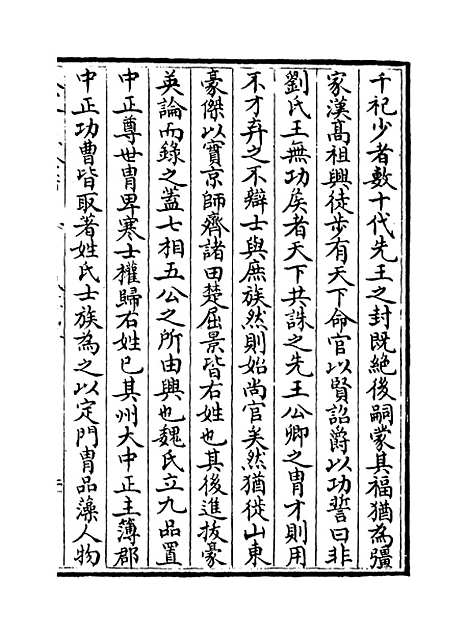 千祀少者數十代先王之封既絶後嗣蒙其福猶為彊
家漢髙祖興徒步有天下命官以賢詔爵以功誓曰非
劉氏王無功矦者天下共誅之先王公卿之胄才則用
不才弃之不辯士與庶族然則始尚官矣然猶徙山東
豪傑以實京師齊諸田楚屈景皆右姓也其後進抜豪
英論而錄之蓋七相五公之所由興也魏氏立九品置
中正尊世胄卑寒士權歸右姓已其州大中正主簿郡
中正功曹皆取著姓氏士族為之以定門胄品藻人物